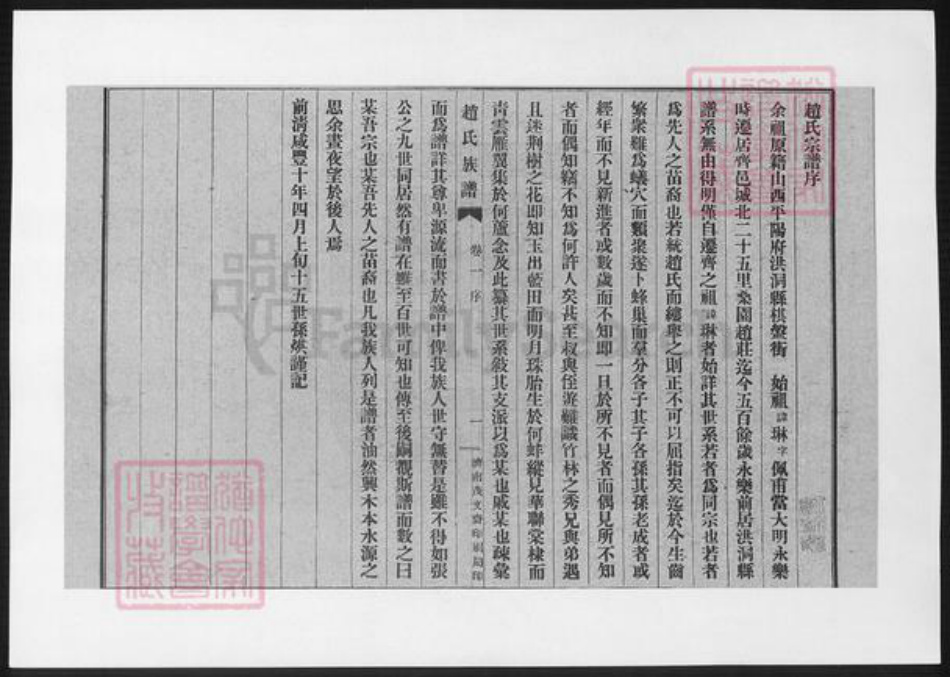 趙氏宗譜序
余祖原籍山西平陽府洪洞縣棋盤街　始祖諱琳字佩甫當大明永樂
時遷居齊邑城北二十五里桑園趙莊迄今五百餘歲永樂前居洪洞縣
譜系無由得明僅自遷齊之祖諱琳者始詳其世系若者為同宗也若者
為先人之苗裔也若統趙氏而縷舉之則正不可以屈指矣迄於今生齒
繁衆雖為蟻穴而類聚遂卜蜂巢而羣分各子其子各孫其孫老成者或
經年而不見新進者或數歲而不知即一旦於所不見者而偶見所不知
者而偶知竊不知為何許人矣甚至叔與侄遊難識竹林之秀兄與弟遇
且迷荆樹之花即知玉出藍田而明月珠胎生於何蚌縱見華聯棠棣而
青雲雁翼集於何蘆念及此纂其世系敍其支派以為某也戚某也疎彙
趙氏族譜　卷一序　一　濟南茂文齋印刷局印
而為譜詳其尊卑源流而書於譜中俾我族人世守無替是雖不得如張
公之九世同居然有譜在雖至百世可知也傳至後嗣觀斯譜而數之曰
某吾宗也某吾先人之苗裔也凡我族人列是譜者油然興木本水源之
思余晝夜望於後人焉
前清咸豐十年四月上旬十五世孫煐謹記
FamilySearch